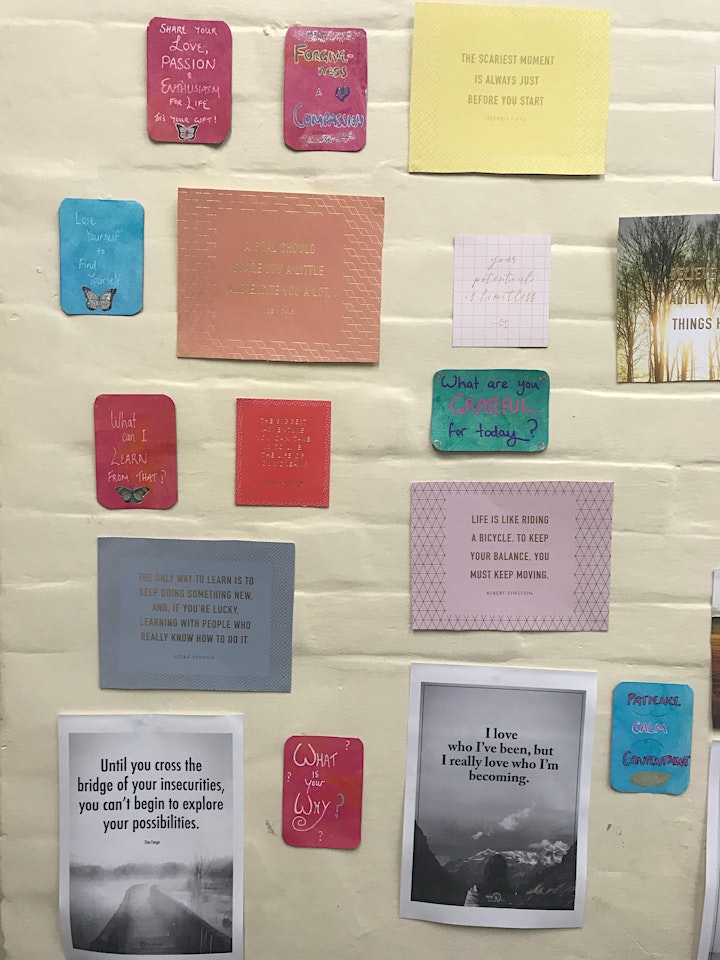 SHARE YOUR
LOVE,
PASSION
&
ENTHUSIASM
FOR LIFE
It's YOUR GIFT!
FORGIVE-
NESS
&
COMPASSION
THE SCARIEST MOMENT
IS ALWAYS JUST
BEFORE YOU START
STEPHEN KING
Lose
Yourself
to
Find
Yourself
A GOAL SHOULD
SCARE YOU A LITTLE
AND EXCITE YOU A LOT.
your
potential
is limitless
ABILITY
THINGS
What
can I
LEARN
FROM THAT?
THE BIGGEST
ADVENTURE
YOU CAN TAKE
IS TO LIVE
THE LIFE OF
YOUR DREAMS
What are you
GRATEFUL
for today?
LIFE IS LIKE RIDING
A BICYCLE. TO KEEP
YOUR BALANCE, YOU
MUST KEEP MOVING.
ALBERT EINSTEIN
THE ONLY WAY TO LEARN IS TO
KEEP DOING SOMETHING NEW.
AND, IF YOU'RE LUCKY,
LEARNING WITH PEOPLE WHO
REALLY KNOW HOW TO DO IT.
NORA EPHRON
Until you cross the
bridge of your insecurities,
you can't begin to explore
your possibilities.
Tim Fargo
?
WHAT
? is
your
WHY?
?
I love
who I've been, but
I really love who I'm
becoming.
PATIENCE
CALM
CONTENTMENT